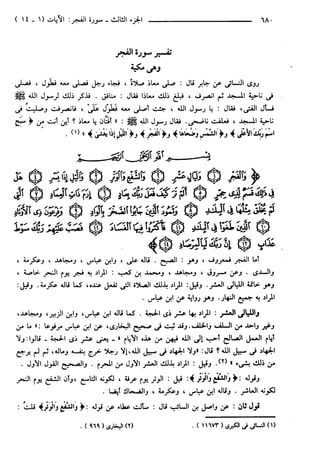 ٦٨٠ الجزء الثالث - سورة الفجر: الآيات (١ - ١٤)
تفسير سورة الفجر
وهى مكية
روى النسائى عن جابر قال : صلى معاذ صلاة ، فجاء رجل فصلى معه فطول ، فصلى
فى ناحية المسجد ثم انصرف ، فبلغ ذلك معاذا فقال : منافق . فذكر ذلك لرسول الله ﷺ
فسأل الفتى، فقال : يا رسول الله ، جئت أصلى معه فطول علىّ ، فانصرفت وصليت فى
ناحية المسجد ، فعلفت ناضحى . فقال رسول الله ﷺ : « أفتَّان يا معاذ ؟ أين أنت من ﴿ سَبِّحِ
اسْمَ رَبِّكَ الأَعْلَى ﴾ ﴿ وَالشَّمْسِ وَضُحَاهَا ﴾ ﴿ وَالْفَجْرِ ﴾ ﴿ وَاللَّيْلِ إِذَا يَغْشَىٰ ﴾ » (١) .
بِسْمِ اللَّهِ الرَّحْمَٰنِ الرَّحِيمِ
﴿ وَالْفَجْرِ ۝ وَلَيَالٍ عَشْرٍ ۝ وَالشَّفْعِ وَالْوَتْرِ ۝ وَاللَّيْلِ إِذَا يَسْرِ ۝ هَلْ
فِي ذَٰلِكَ قَسَمٌ لِّذِي حِجْرٍ ۝ أَلَمْ تَرَ كَيْفَ فَعَلَ رَبُّكَ بِعَادٍ ۝ إِرَمَ ذَاتِ الْعِمَادِ ۝ الَّتِي
لَمْ يُخْلَقْ مِثْلُهَا فِي الْبِلَادِ ۝ وَثَمُودَ الَّذِينَ جَابُوا الصَّخْرَ بِالْوَادِ ۝ وَفِرْعَوْنَ ذِي الْأَوْتَادِ
۝ الَّذِينَ طَغَوْا فِي الْبِلَادِ ۝ فَأَكْثَرُوا فِيهَا الْفَسَادَ ۝ فَصَبَّ عَلَيْهِمْ رَبُّكَ سَوْطَ
عَذَابٍ ۝ إِنَّ رَبَّكَ لَبِالْمِرْصَادِ ۝ ﴾
أما الفجر فمعروف ، وهو : الصبح . قاله على ، وابن عباس ، ومجاهد ، وعكرمة ،
والسدى . وعن مسروق ، ومجاهد ، ومحمد بن كعب : المراد به فجر يوم النحر خاصة ،
وهو خاتمة الليالى العشر. وقيل: المراد بذلك الصلاة التى تفعل عنده، كما قاله عكرمة. وقيل:
المراد به جميع النهار. وهو رواية عن ابن عباس .
والليالى العشر : المراد بها عشر ذى الحجة . كما قاله ابن عباس، وابن الزبير، ومجاهد،
وغير واحد من السلف والخلف. وقد ثبت فى صحيح البخارى، عن ابن عباس مرفوعا : « ما من
أيام العمل الصالح أحب إلى الله فيهن من هذه الأيام » - يعنى عشر ذى الحجة - قالوا: ولا
الجهاد فى سبيل الله ؟ قال: «ولا الجهاد فى سبيل الله، إلا رجلا خرج بنفسه وماله، ثم لم يرجع
من ذلك بشىء » (٢). وقيل : المراد بذلك العشر الأول من المحرم . والصحيح القول الأول .
وقوله : ﴿ وَالشَّفْعِ وَالْوَتْرِ ﴾ : قيل : الوتر يوم عرفة ، لكونه التاسع ،وأن الشفع يوم النحر
لكونه العاشر . وقاله ابن عباس ، وعكرمة ، والضحاك أيضا .
قول ثان : عن واصل بن السائب قال : سألت عطاء عن قوله : ﴿ وَالشَّفْعِ وَالْوَتْرِ ﴾ قلت :
(١) النسائى فى الكبرى ( ١١٦٧٣ ) . (٢) البخارى ( ٩٦٩ ) .